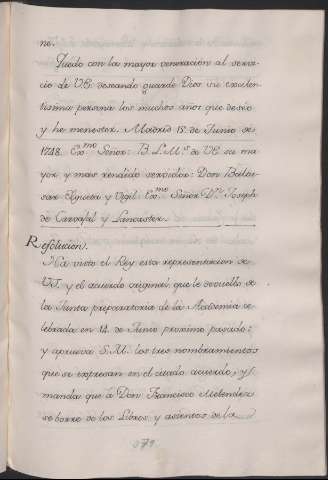 ne.
Quedo con la mayor veneracion al servi-
cio de V.E. deseando guarde Dios su exelen-
tisima persona los muchos años que deseo
y he menester. Madrid 15 de Junio de
1748. Exmo Señor: B. L. Ms de VE su ma-
yor y mas rendido servidor: Don Balta-
sar Elgueta y Vigil: Exmo Señor Dn Joseph
de Carvajal y Lancaster.
Resolucion.
Ha visto el Rey esta representacion de
V.S. y el acuerdo original que le devuelbo de
la Junta preparatoria de la Academia ce-
lebrada en 14 de Junio proximo pasado:
y aprueva S.M. los tres nombramientos
que se expresan en el citado acuerdo, y
manda que à Don Francisco Melendez
se borre de los Libros y asientos de la